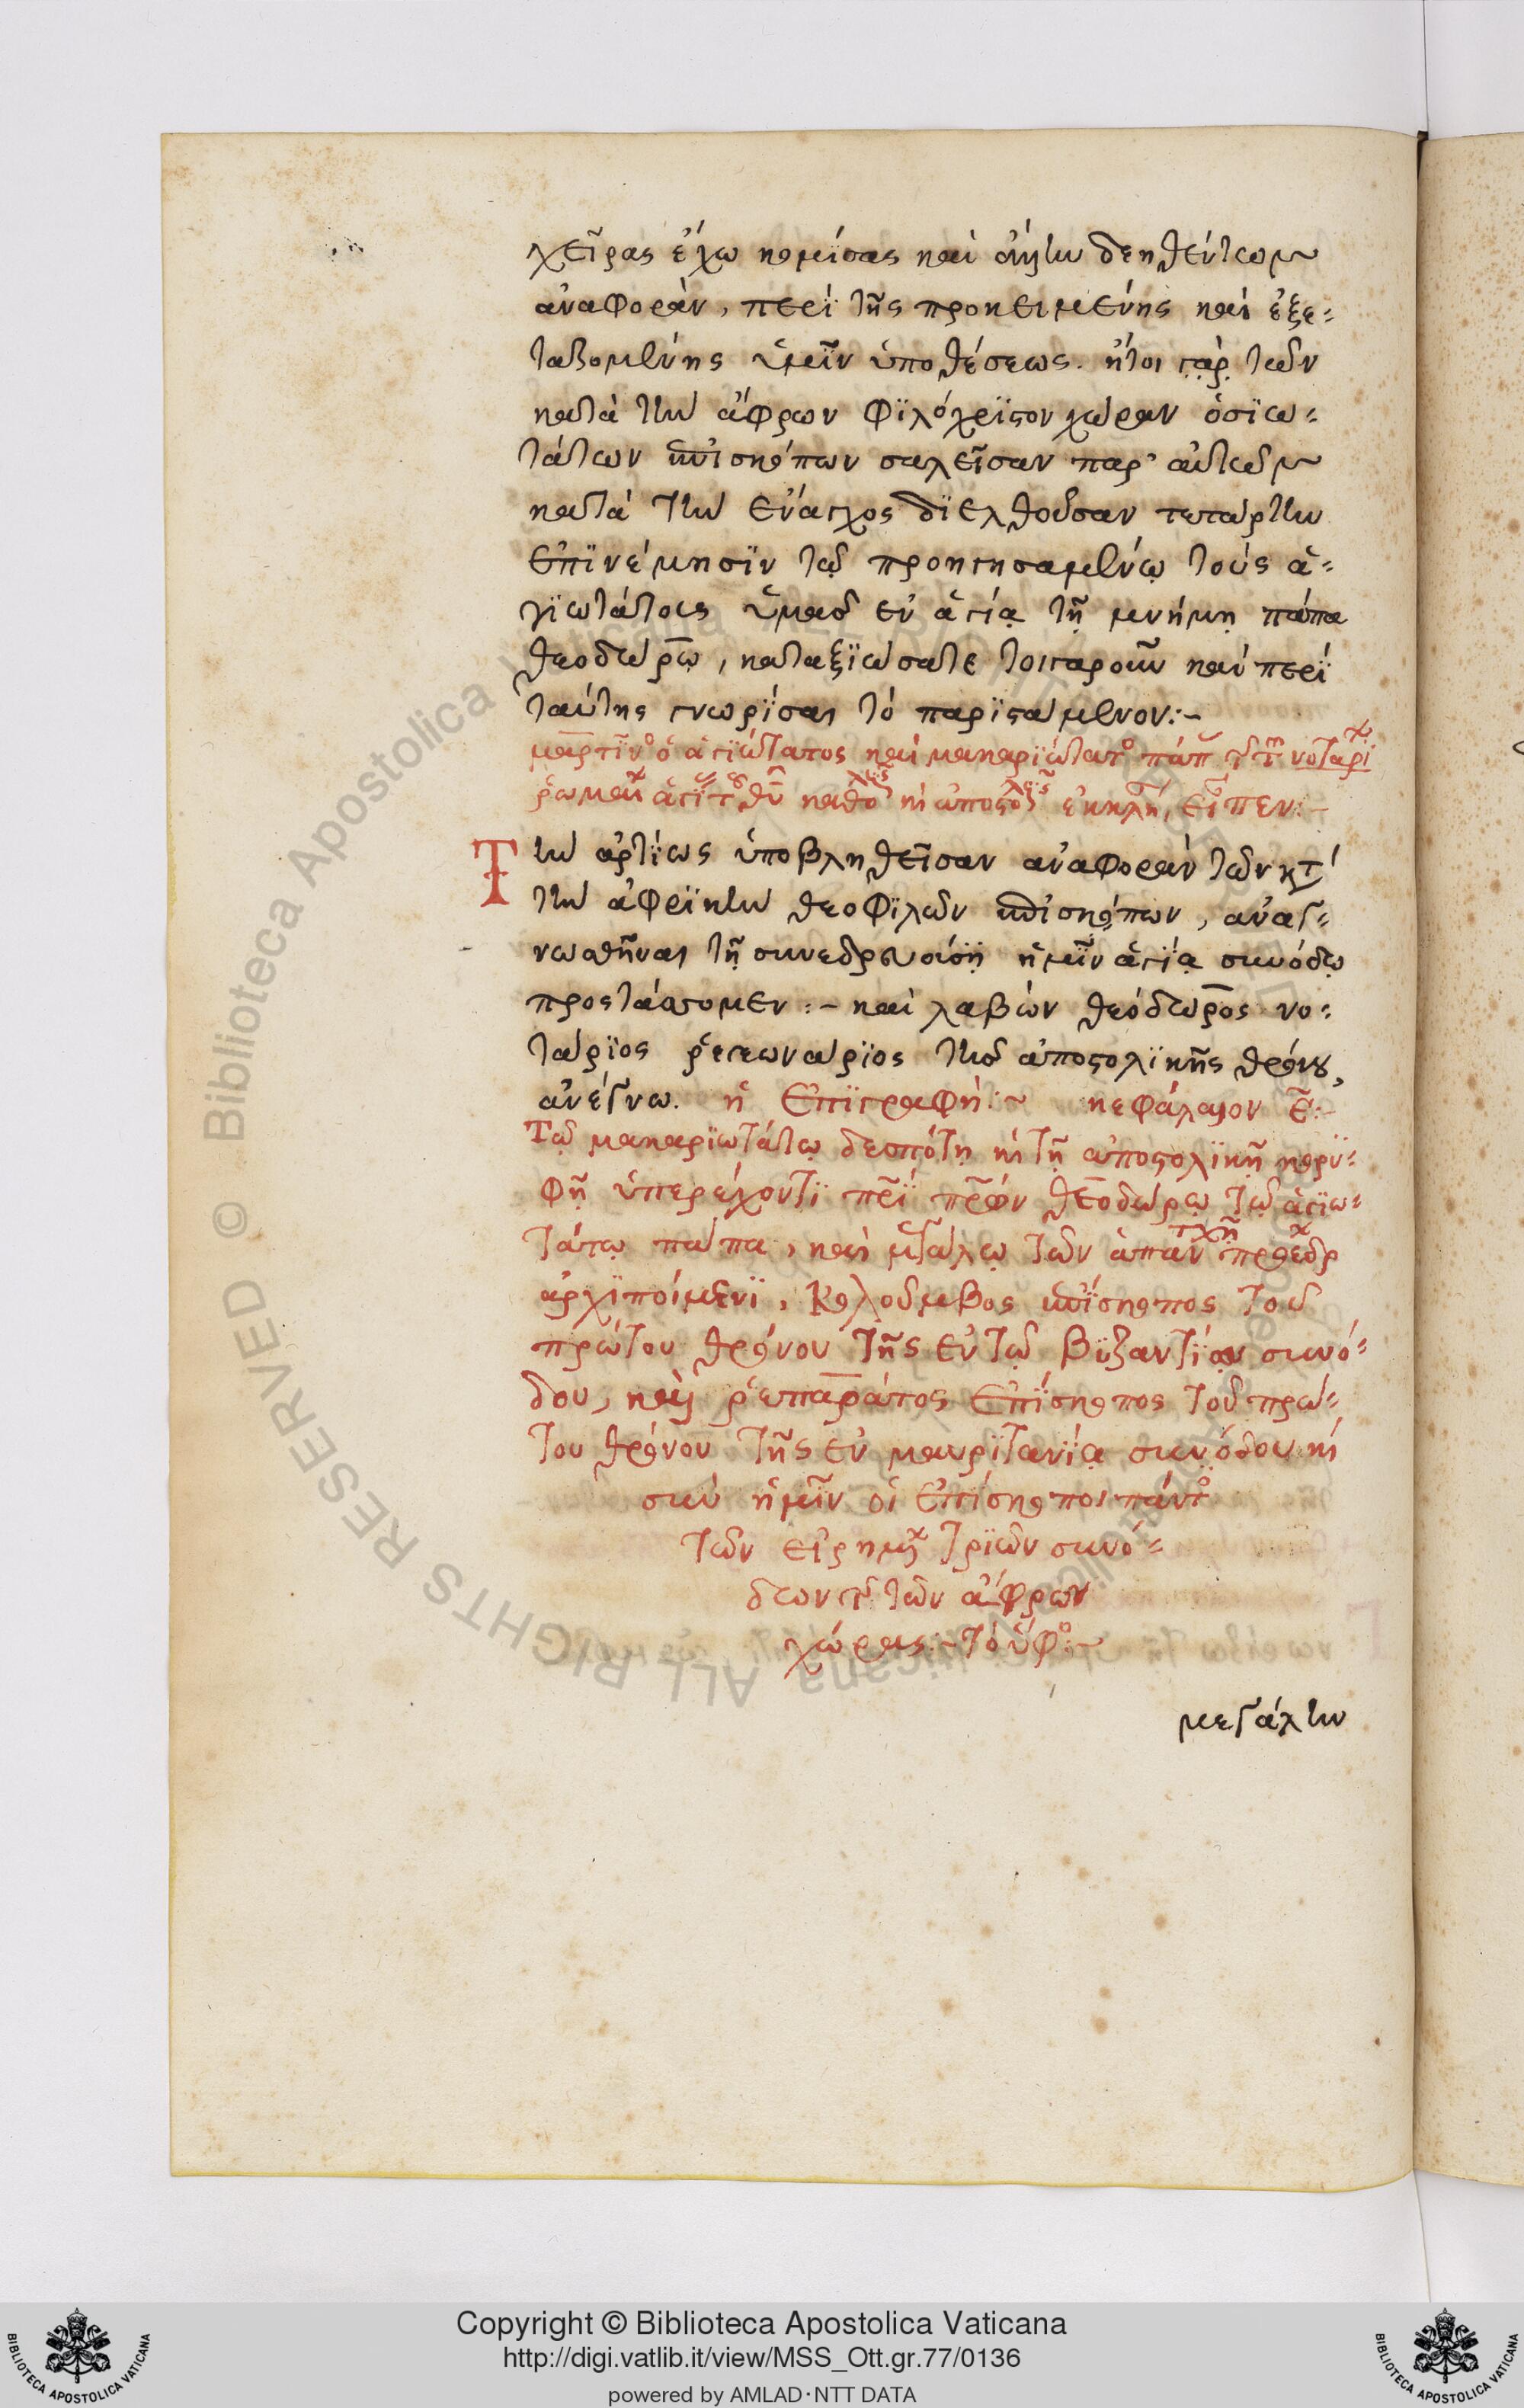 χεῖρας ἔχω κομίσας καὶ ἄλλην δεηθέντων
ἀναφοράν, περὶ τῆς προκειμένης καὶ ἐξε-
ταζομένης ὑμῖν ὑποθέσεως. ἤτοι γὰρ τῶν
κατὰ τὴν ἄφρων φιλόχριστον χώραν ὁσιω-
τάτων ἐπισκόπων σαλεῖσαν παρ' αὐτῶν
κατὰ τὴν ἔναγχος διελθοῦσαν τετάρτην
ἐπινέμησιν τῷ προηγησαμένῳ τοὺς ἁ-
γιωτάτους ὑμᾶς ἐν ἁγίᾳ τῇ μνήμῃ πάπα
θεοδώρῳ, καταξιώσατε τοιγαροῦν καὶ περὶ
ταύτης γνωρίσαι τὸ παριστάμενον:-
μαρτῖνο ὁ ἁγιώτατος καὶ μακαριώτατο πάπ νοταρι
εἶπεν:-
Τὴν ἀρτίως ὑποβληθεῖσαν ἀναφορὰν τῶν κτ
τὴν ἀφρικὴν θεοφιλῶν ἐπισκόπων, ἀναγ-
νωσθῆναι τῇ συνεδρευούσῃ ἡμῖν ἁγίᾳ συνόδῳ
προστάσσομεν:- καὶ λαβὼν θεόδωρος νο-
τάριος ῥεγεωνάριος τοῦ ἀποστολικῆς θρόνου,
ἀνέγνω. ἡ ἐπιγραφή:~ κεφάλαιον ε:-
Τῷ μακαριωτάτῳ δεσπότῃ κὶ τῇ ἀποστολικῇ κορυ-
φῇ ὑπερέχοντι πρῒ πρων θεοδώρῳ τῷ ἁγιω-
τάτῳ πάπα, καὶ μεγάλῳ τῶν ἁπαν προεδρ
ἀρχιποίμενι, Κολοῦμβος ἐπίσκοπος τοῦ
πρώτου θρόνου τῆς ἐν τῷ βυζαντίον συνό-
δου, καὶ ῥεπαράτος ἐπίσκοπος τοῦ πρώ-
του θρόνου τῆς ἐν μαυριτανίᾳ συνόδου κὶ
σὺν ἡμῖν οἱ ἐπίσκοποι πάντο
τῶν εἰρημ τριῶν συνό-
δων τῶν ἄφρων
χώρας:~ τὸ ὕφο:~
μεγάλην
Copyright © Biblioteca Apostolica Vaticana
http://digi.vatlib.it/view/MSS_Ott.gr.77/0136
powered by AMLAD·NTT DATA
BIBLIOTECA APOSTOLICA VATICANA
BIBLIOTECA APOSTOLICA VATICANA